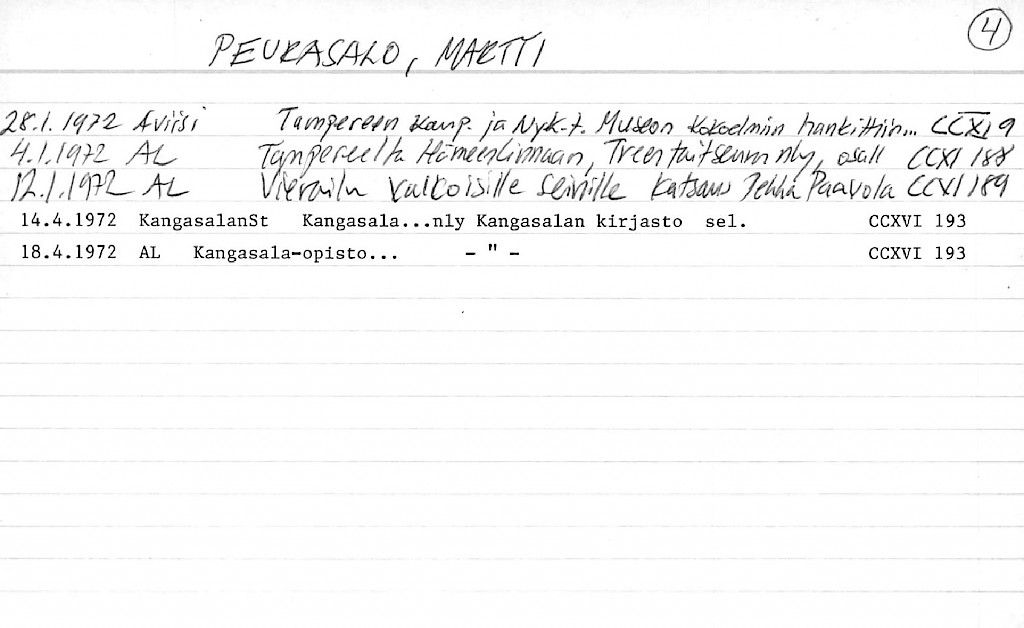 4
PEURASALO, MARTTI
28.1.1972 Aviisi Tampereen kaup. ja Nyk.t. Museon kokoelmiin hankittiin... CCXI 9
4.1.1972 AL Tampereelta Hämeenlinnaan, Treen taitseuran nly, osall CCXI 188
12.1.1972 AL Vierailu valkoisille seinille katsaus Jehka Paavola CCXI 189
14.4.1972 KangasalanSt Kangasala...nly Kangasalan kirjasto sel. CCXVI 193
18.4.1972 AL Kangasala-opisto... - " - CCXVI 193